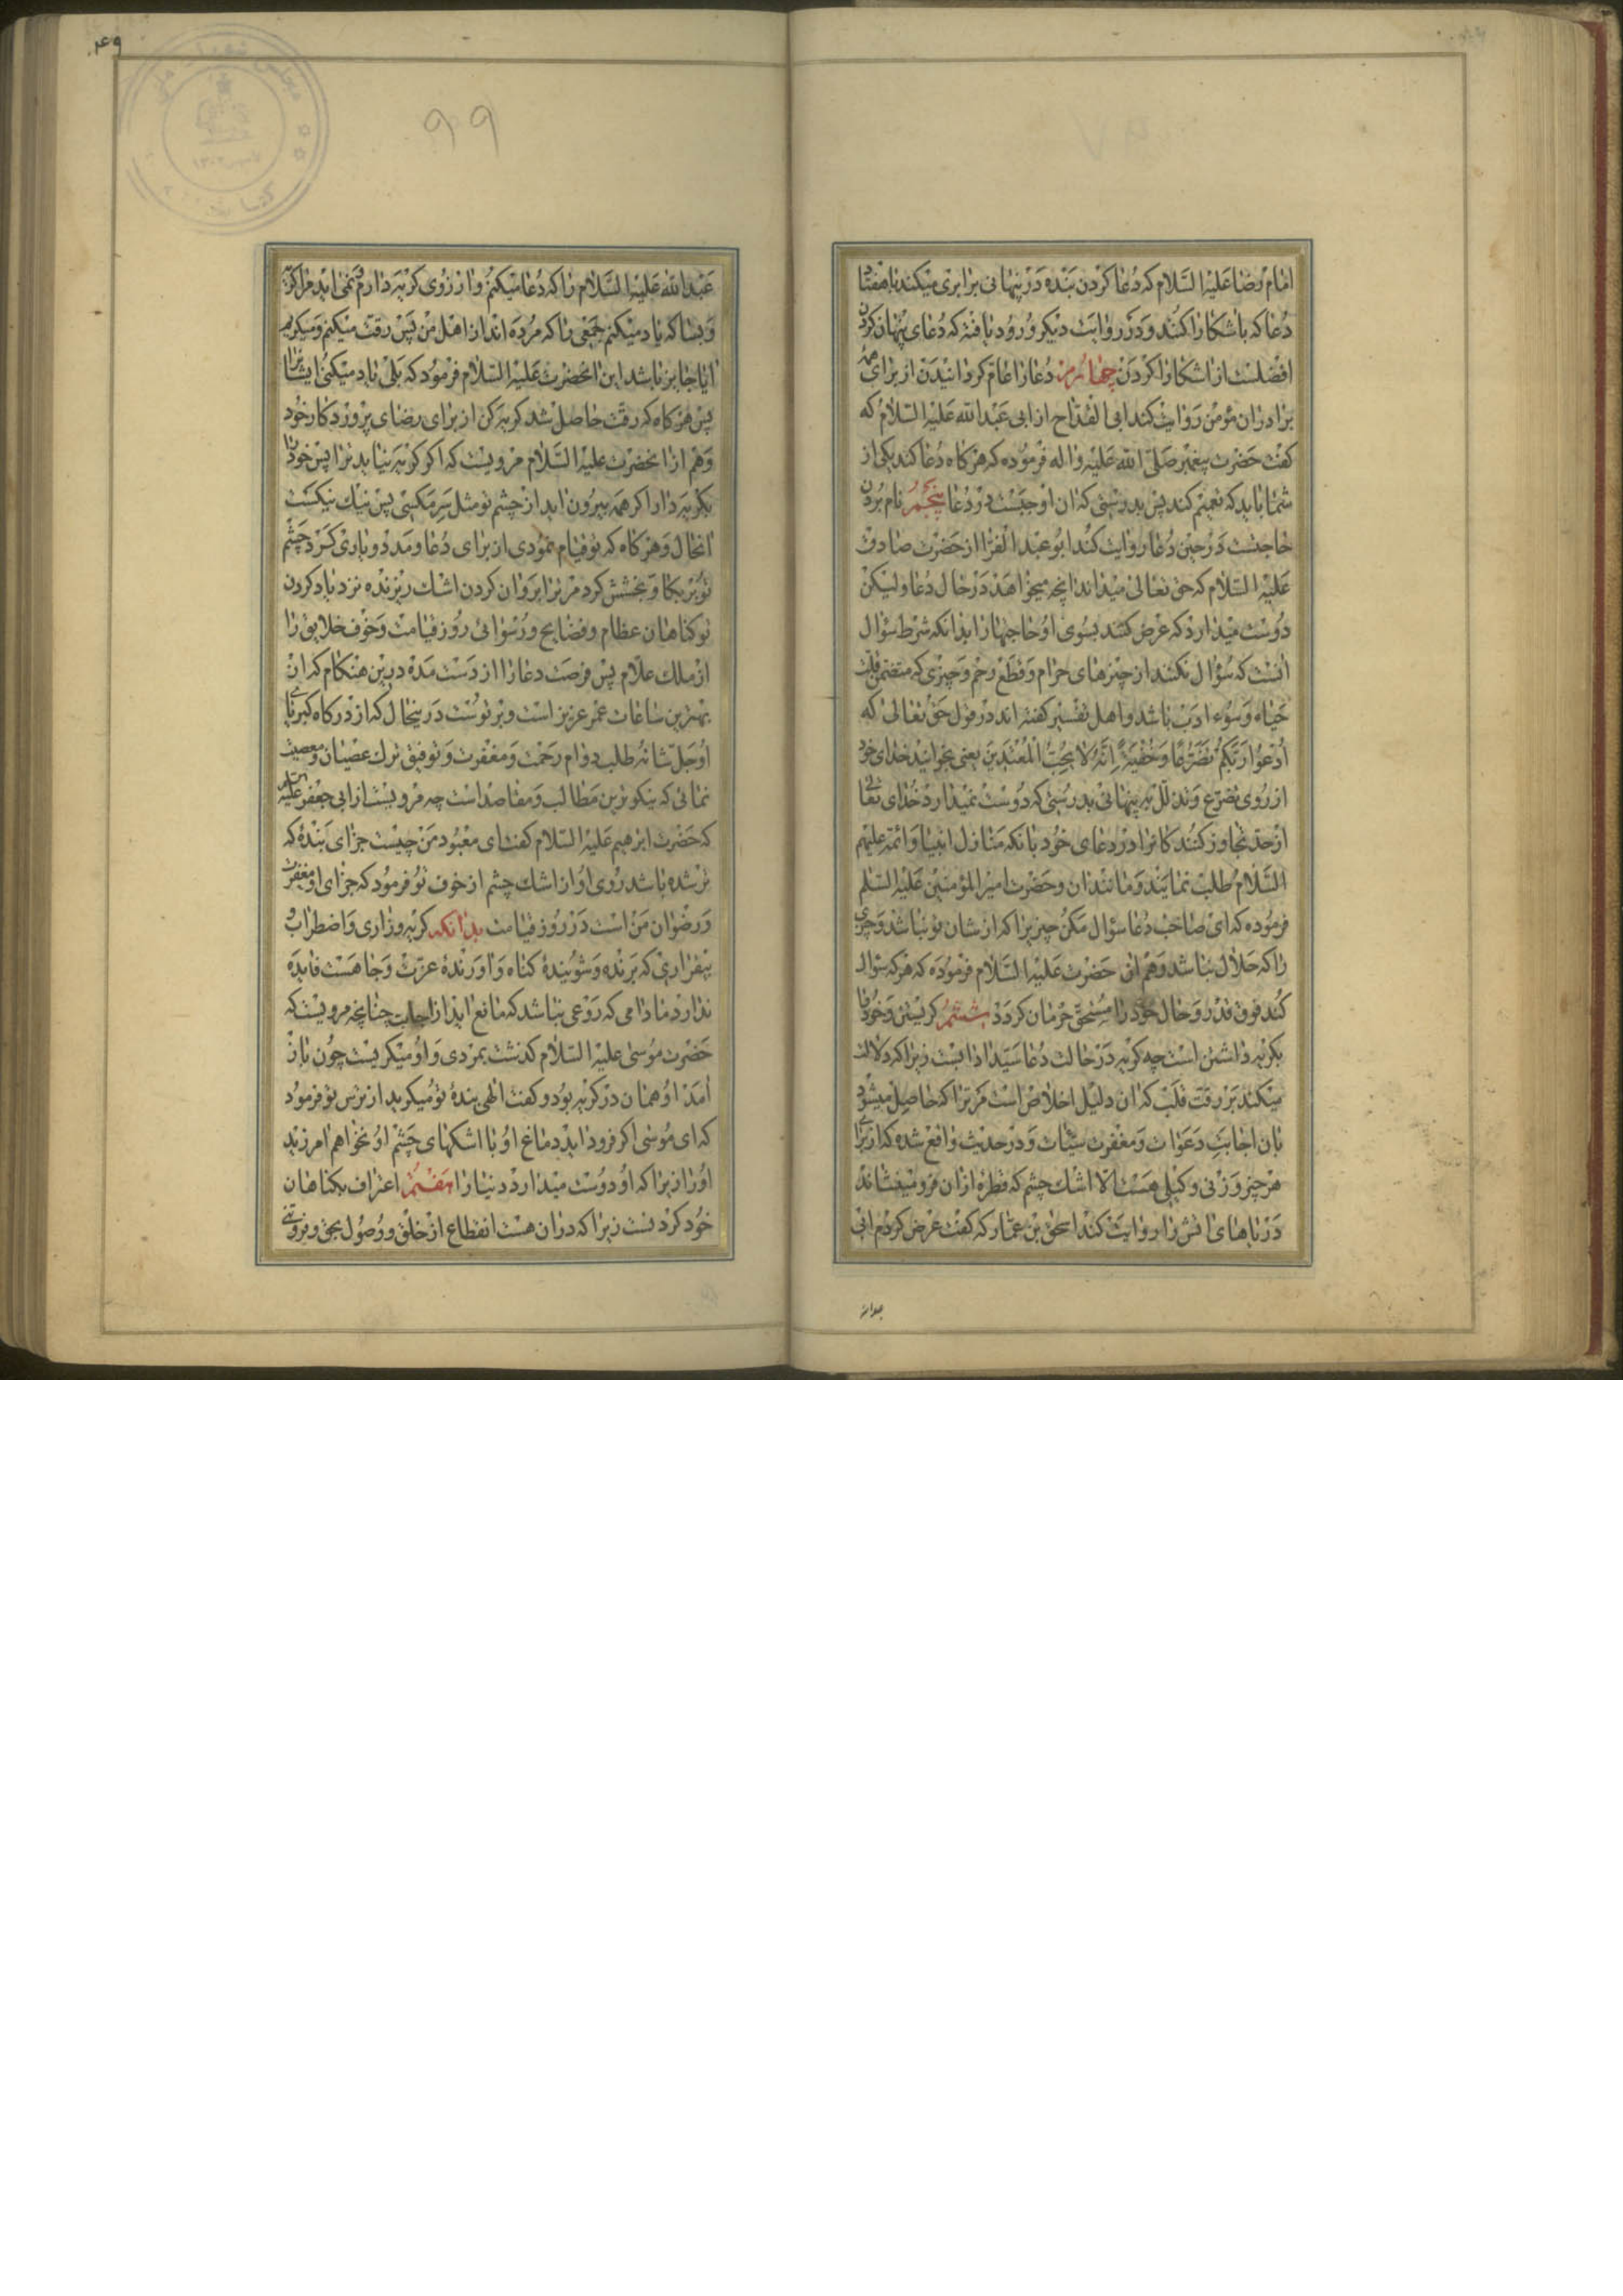 امام رضا علیه السلام که دعا کردن بنده در پنهانی برابری میکند با هفتاد
دعا که باشکارا کنند و در روایت دیگر ورود یافته که دعای پنهان کردن
افضلست از اشکارا کردن چهارم دعا را عام گردانیدن از برای همه
برادران مؤمن روایت کند ابی القداح از ابی عبد الله علیه السلام که
گفت حضرت پیغمبر صلی الله علیه واله فرموده که هرگاه دعا کند یکی از
شما باید که تعمیم کند پس بدرستی که ان اوجبست در دعا پنجم نام بردن
حاجتست در حین دعا روایت کند ابو عبد الفرا از حضرت صادق
علیه السلام که حق تعالی میداند انچه میخواهد در حال دعا ولیکن
دوست میدارد که عرض کنند بسوی او حاجتها را بدانکه شرط سؤال
انست که سؤال نکنند از چیزهای حرام و قطع رحم و چیزی که متضمن قلت
حیاء و سوء ادب باشد و اهل تفسیر گفته اند در قول حق تعالی که
ادعوا ربکم تضرعا و خفیة انه لا یحب المعتدین یعنی بخوانید خدای خود
از روی تضرع و تذلل به پنهانی بدرستی که دوست نمیدارد خدای تعالی
از حد تجاوز کنندکانرا در دعای خود بانکه منازل انبیا و ائمه علیهم
السلام طلب نمایند و مانند ان و حضرت امیر المؤمنین علیه السلم
فرموده که ای صاحب دعا سؤال مکن چیزیرا که از شان تو نباشد و چیزی
را که حلال نباشد و هم ان حضرت علیه السلام فرموده که هر که سؤال
کند فوق قدر و حال خود را مستحق حرمان کردد ششم کریستن و خود را
بکریه داشتن است چه کریه در حالت دعا سید ادابست زیرا که دلالت
میکند بر رقت قلب که ان دلیل اخلاص است مر ترا که حاصل میشود
بان اجابت دعوات و مغفرت سیئات و در حدیث واقع شده که از برای
هر چیز وزنی و کیلی هست الا اشک چشم که قطرهٔ ازان فرو مینشاند
دریاهای اتش را روایت کند اسحق بن عمار که گفت عرض کردم ابی
عبد الله
۴۹
۹۹
عبد الله علیه السلام را که دعا میکنم و ارزوی کریه دارم و نمی اید مرا کریه
و بسا که یاد میکنم جمعی را که مرده اند از اهل من پس رقت میکنم و میکریم
ایا جایز باشد این انحضرت علیه السلام فرمود که بلی یاد میکن ایشانرا
پس هرگاه که رقت حاصل شد کریه کن از برای رضای پروردکار خود
و هم از انحضرت علیه السلام مرویست که اکر کریه نیاید ترا پس خود را
بکریه دار اکر همه بیرون اید از چشم تو مثل سر مکسی پس نیک نیکست
انحال و هرگاه که تو قیام نمودی از برای دعا و مدد و یاری کرد چشم
تو بر بکا و بخشش کرد مر ترا بروان کردن اشک ریزنده نزد یاد کردن
تو کناهان عظام و فضایح و رسوائی روز قیامت و خوف خلایق را
از ملک علام پس فرصت دعا را از دست مده درین هنکام که ان
بهترین ساعات عمر عزیز است و بر توست در ینحال که از درکاه کبریای
او جل شانه طلب دوام رحمت و مغفرت و توفیق ترک عصیان و معصیت
نمائی که نیکوترین مطالب و مقاصد است چه مرویست از ابی جعفر علیه السلام
که حضرت ابرهیم علیه السلام گفت ای معبود من چیست جزای بندهٔ که
تر شده باشد روی او از اشک چشم از خوف تو فرمود که جزای او مغفرت
و رضوان من است در روز قیامت بدانکه کریه و زاری و اضطراب و
بیقراری که برنده و شویندهٔ کناه و اورندهٔ عزت و جاه هست فایده
ندارد مادامی که ورعی نباشد که مانع اید از اجابت چنانچه مرویست که
حضرت موسی علیه السلام کذشت بمردی و او میکریست چون باز
امد او همان در کریه بود و گفت الهی بندهٔ تو میکرید از ترس تو فرمود
که ای موسی اکر فرود اید دماغ او با اشکهای چشم او نخواهم امرزید
او را زیرا که او دوست میدارد دنیا را هفتم اعتراف بکناهان
خود کردنست زیرا که دران هست انقطاع از خلق و وصول بحق و فروتنی